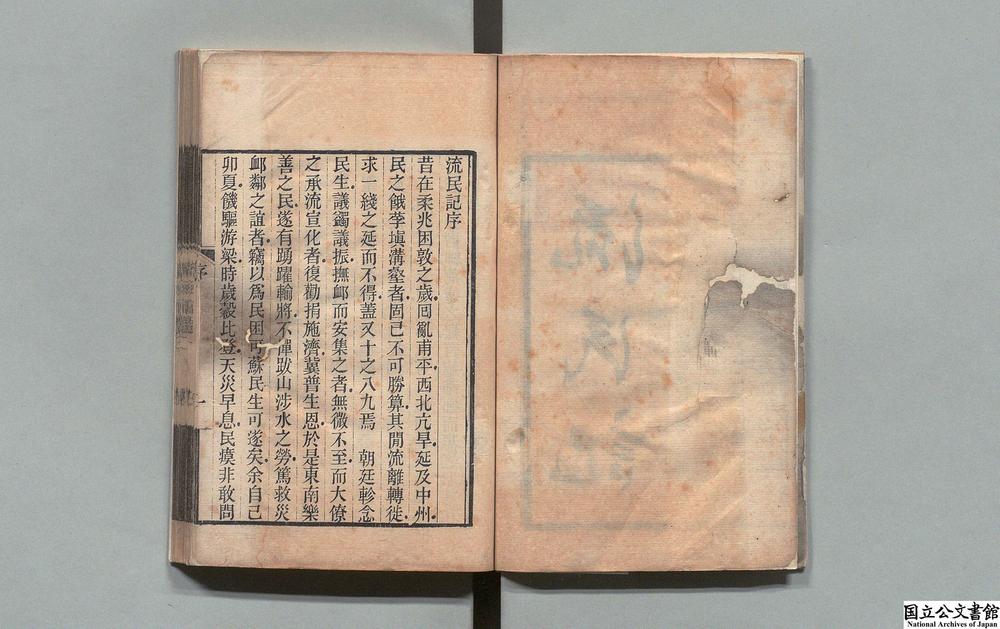 流民記序
昔在柔兆困敦之歲回亂甫平西北亢旱延及中州
民之餓莩塡溝壑者固已不可勝算其閒流離轉徙
求一綫之延而不得蓋又十之八九焉　朝廷軫念
民生議蠲議振撫卹而安集之者無微不至而大僚
之承流宣化者復勸捐施濟冀普生恩於是東南樂
善之民遂有踴躍輸將不憚跋山涉水之勞篤救災
卹鄰之誼者竊以爲民困可蘇民生可遂矣余自己
卯夏饑驅游梁時歲穀比登天災早息民瘼非敢問
序
一
流民記
国立公文書館
National Archives of Japan